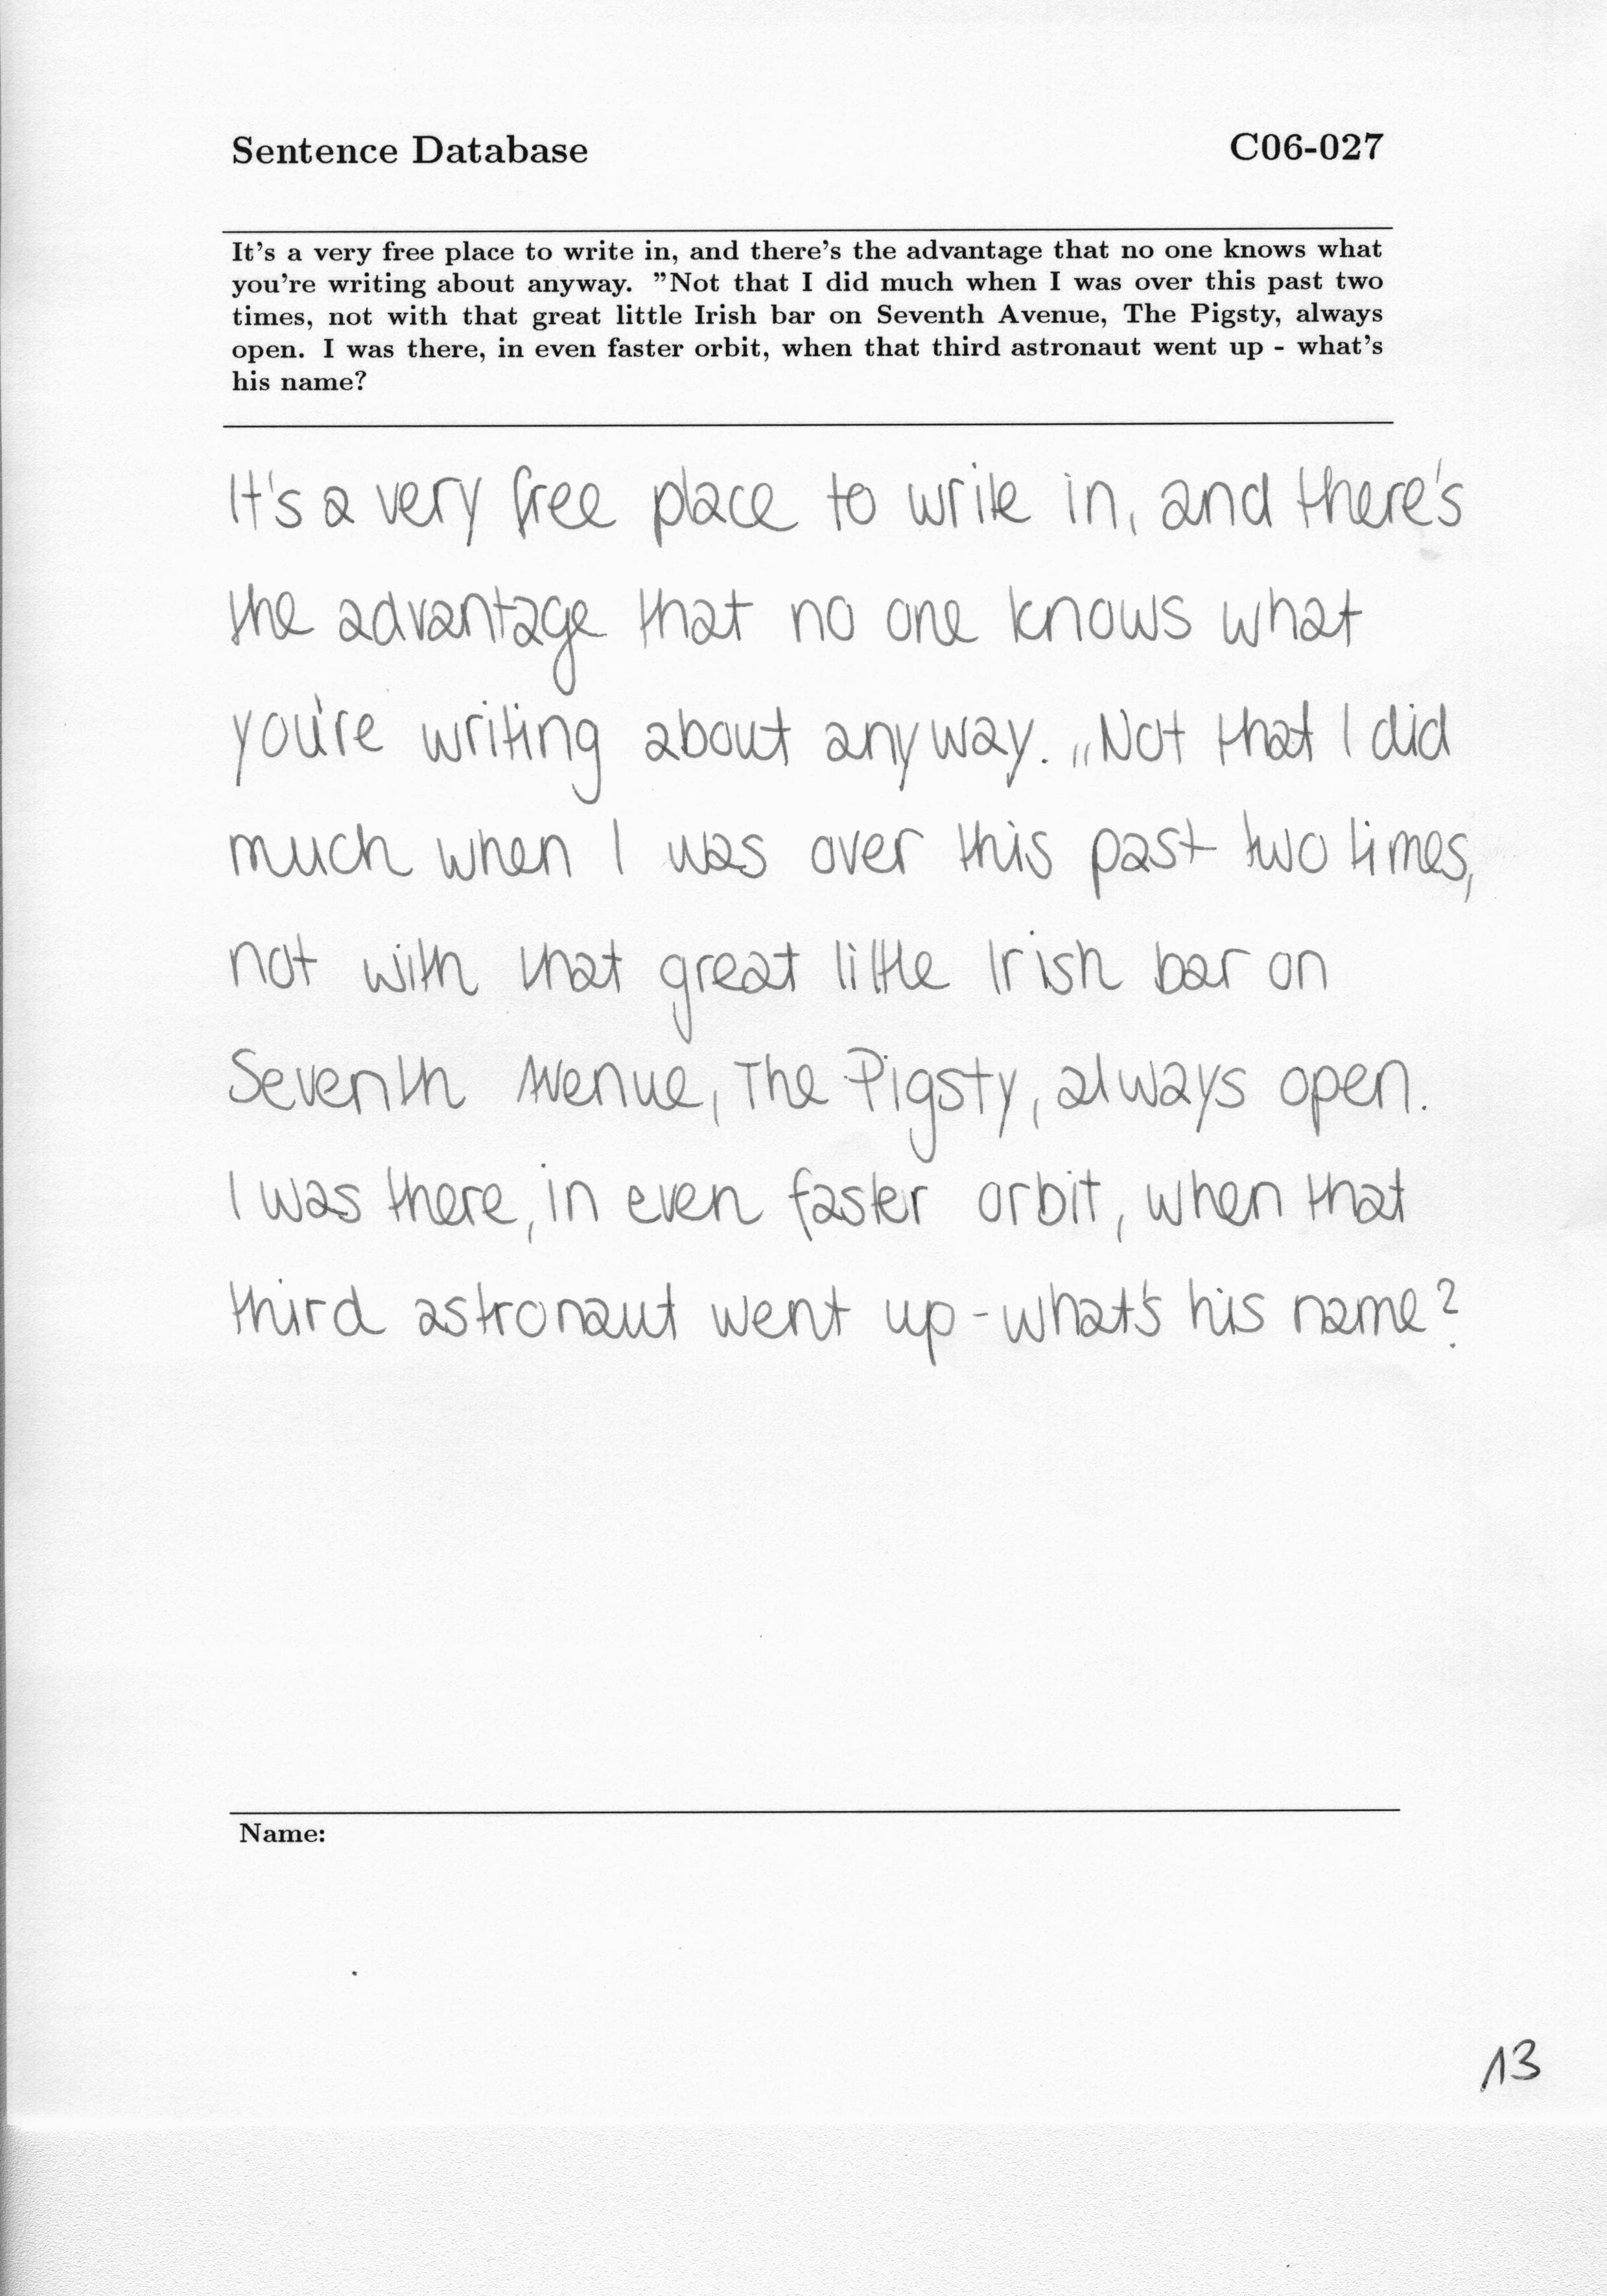 Sentence Database C06-027
It's a very free place to write in, and there's the advantage that no one knows what
you're writing about anyway. "Not that I did much when I was over this past two
times, not with that great little Irish bar on Seventh Avenue, The Pigsty, always
open. I was there, in even faster orbit, when that third astronaut went up - what's
his name?
It's a very free place to write in, and there's
the advantage that no one knows what
you're writing about anyway. „Not that I did
much when I was over this past two times,
not with that great little Irish bar on
Seventh Avenue, The Pigsty, always open.
I was there, in even faster orbit, when that
third astronaut went up - what's his name?
Name:
13